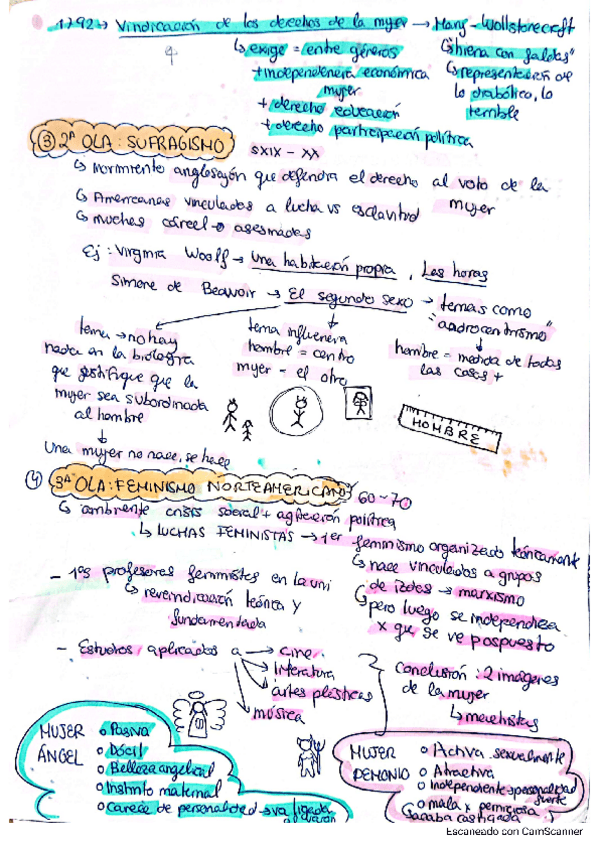 1792 → Vindicación de los derechos de la mujer → Mary Wollstonecraft
↳ exige = entre géneros
+ independencia económica
mujer
+ derecho educación
+ derecho participación política
↳ "hiena con faldas"
↳ representación de
lo diabólico, lo
terrible
③ 2ª OLA: SUFRAGISMO
SXIX - XX
↳ Movimiento anglosajón que defendía el derecho al voto de la
mujer
↳ Americanas vinculadas a lucha vs esclavitud
↳ muchas cárcel → asesinadas
Ej: Virginia Woolf → Una habitación propia, Las horas
Simone de Beauvoir → El segundo sexo → temas como
"androcentrismo"
tema → no hay
nada en la biología
que justifique que la
mujer sea subordinada
al hombre
↓
Una mujer no nace, se hace
tema influencia
hombre = centro
mujer = el otro
hombre = medida de todas
las cosas +
HOMBRE
④ 3ª OLA: FEMINISMO NORTEAMERICANO
60-70
↳ ambiente crisis social + agitación política
↳ LUCHAS FEMINISTAS → 1er feminismo organizado teóricamente
↳ nace vinculados a grupos
de izdas → marxismo
↳ pero luego se independiza
x que se ve pospuesto
- 1os profesores feministas en la uni
↳ reivindicación teórica y
fundamentada
- Estudios aplicados a → cine
→ literatura
→ artes plásticas
→ música
Conclusión: 2 imágenes
de la mujer
↳ machistas
MUJER
ÁNGEL
o Pasiva
o Dócil
o Belleza angelical
o Instinto maternal
o Carece de personalidad → va ligada
al varón
MUJER
DEMONIO
o Activa sexualmente
o Atractiva
o Independiente → personalidad
fuerte
o mala x perniciosa
↳ acaba castigada
Escaneado con CamScanner